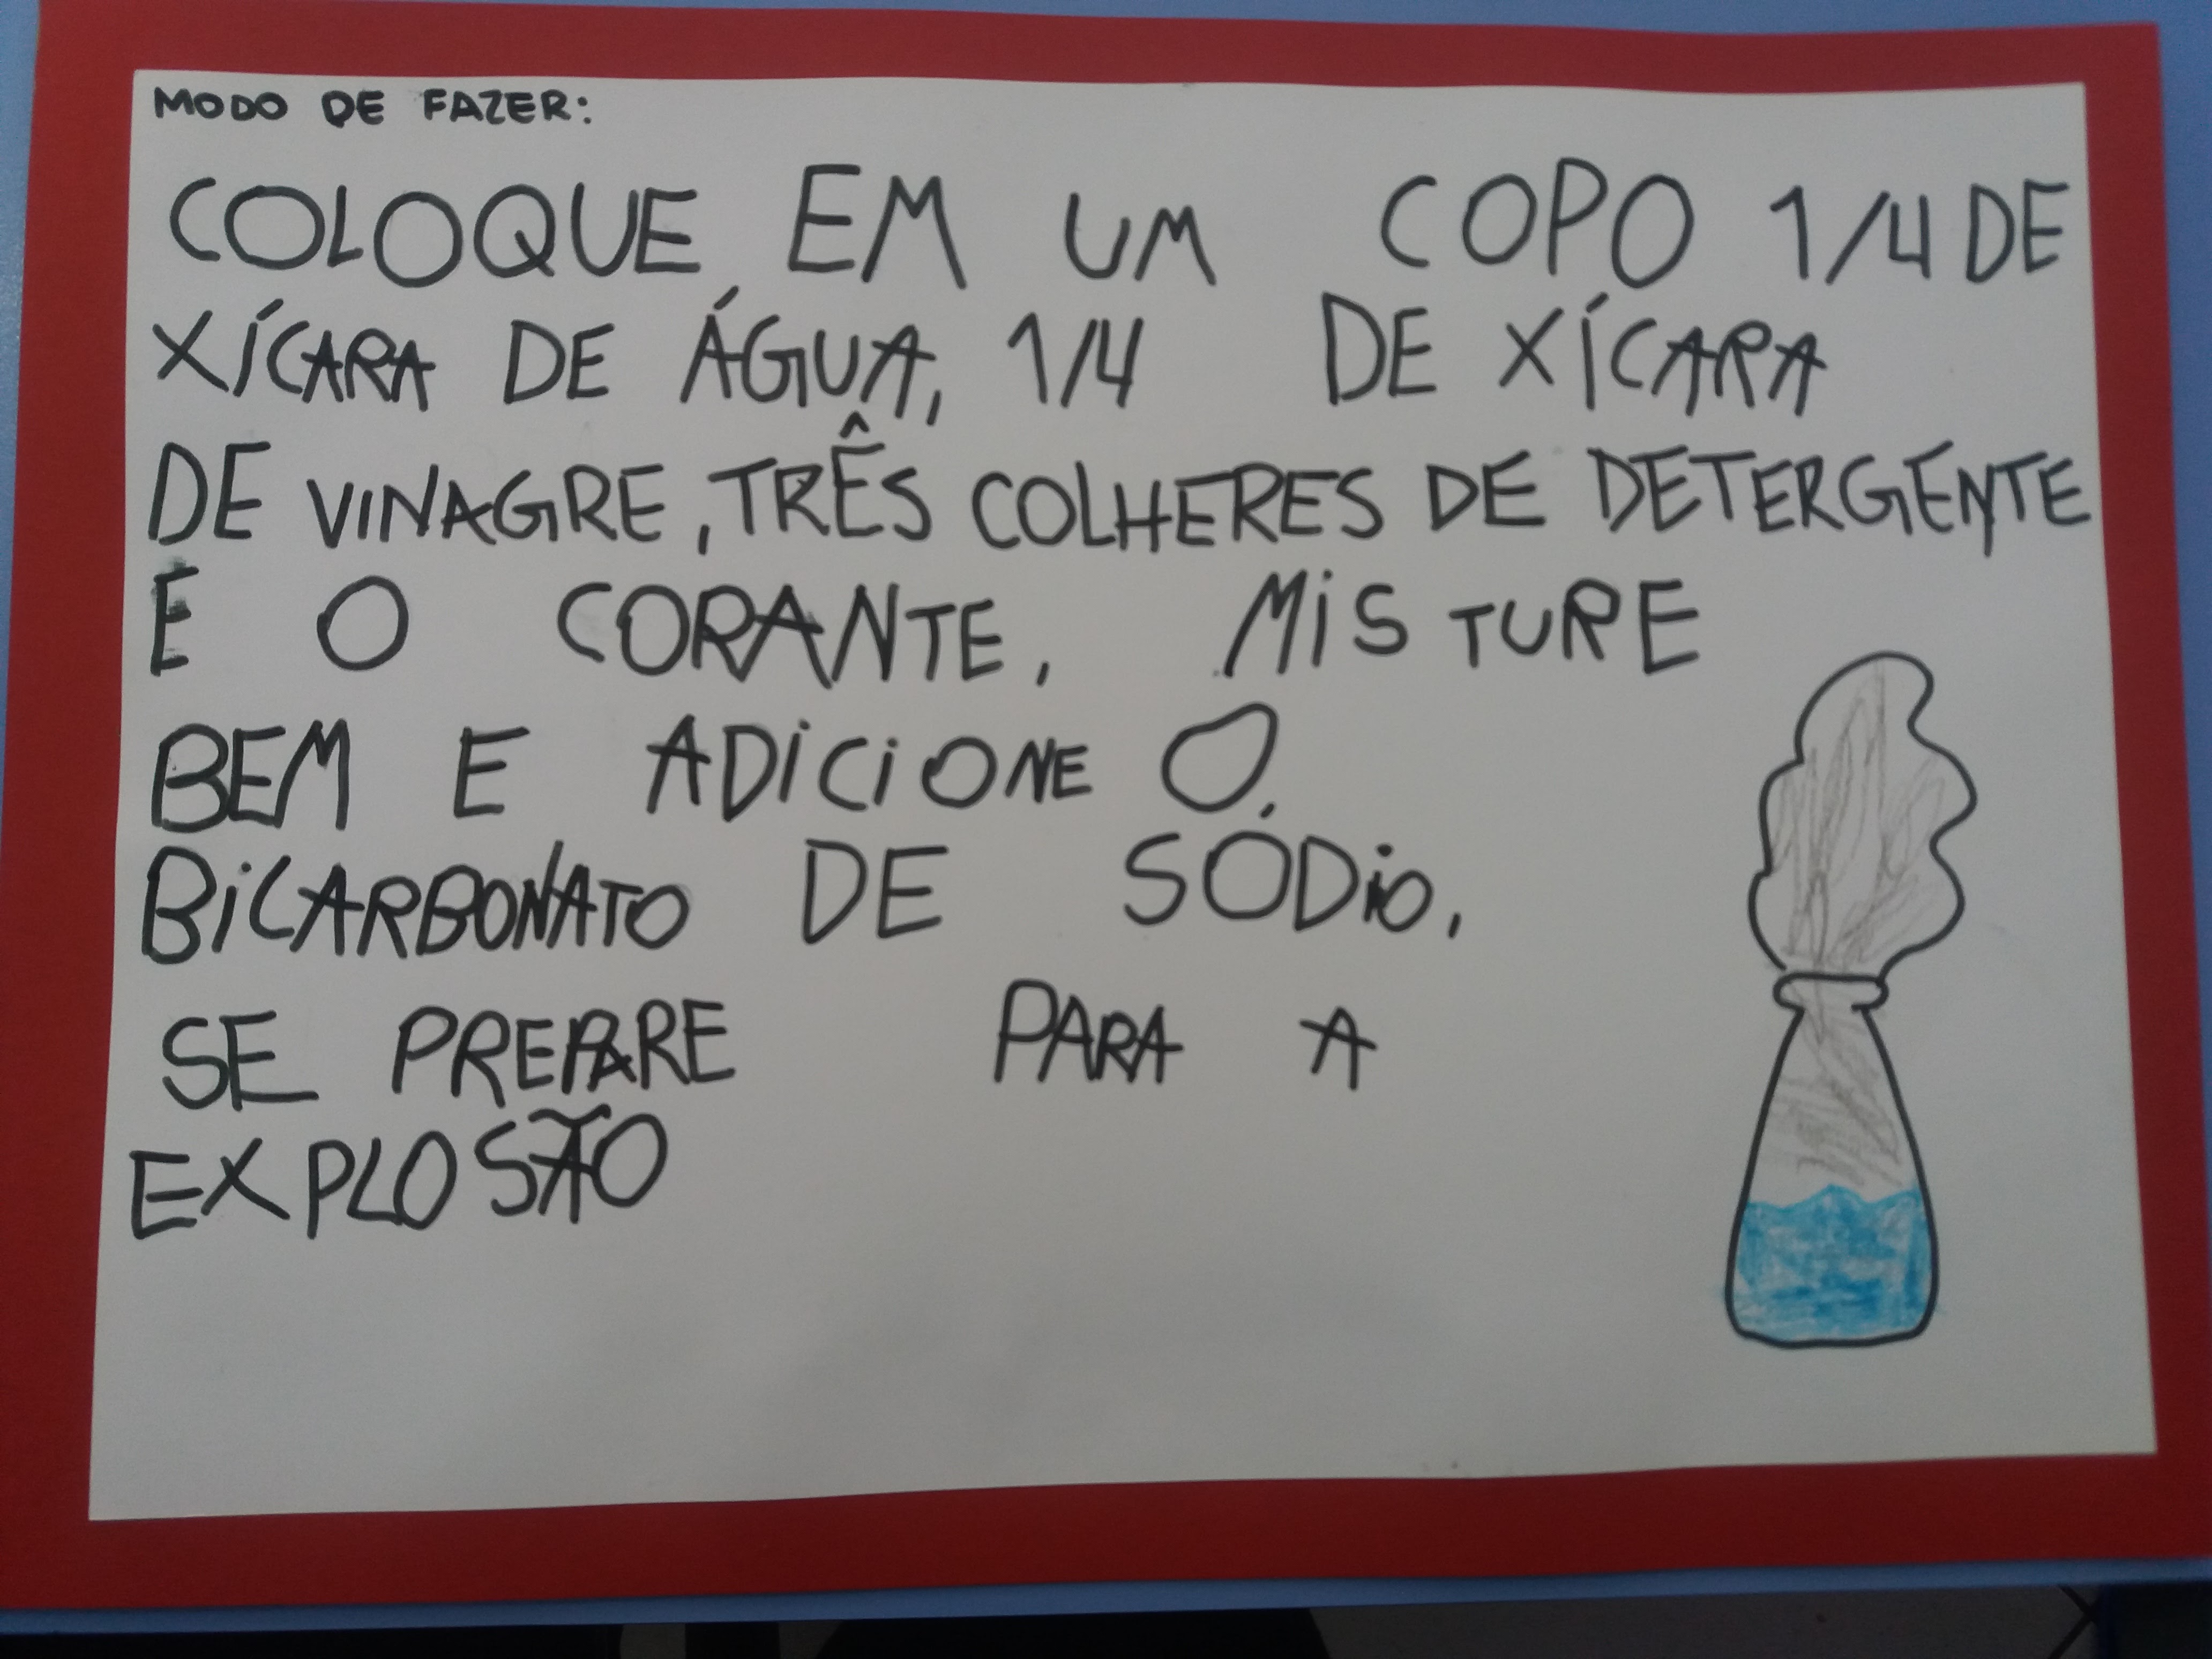 MODO DE FAZER:
COLOQUE EM UM COPO 1/4 DE
XÍCARA DE ÁGUA, 1/4 DE XÍCARA
DE VINAGRE, TRÊS COLHERES DE DETERGENTE
E O CORANTE. MISTURE
BEM E ADICIONE O
BICARBONATO DE SÓDIO.
SE PREPARE PARA A
EXPLOSÃO